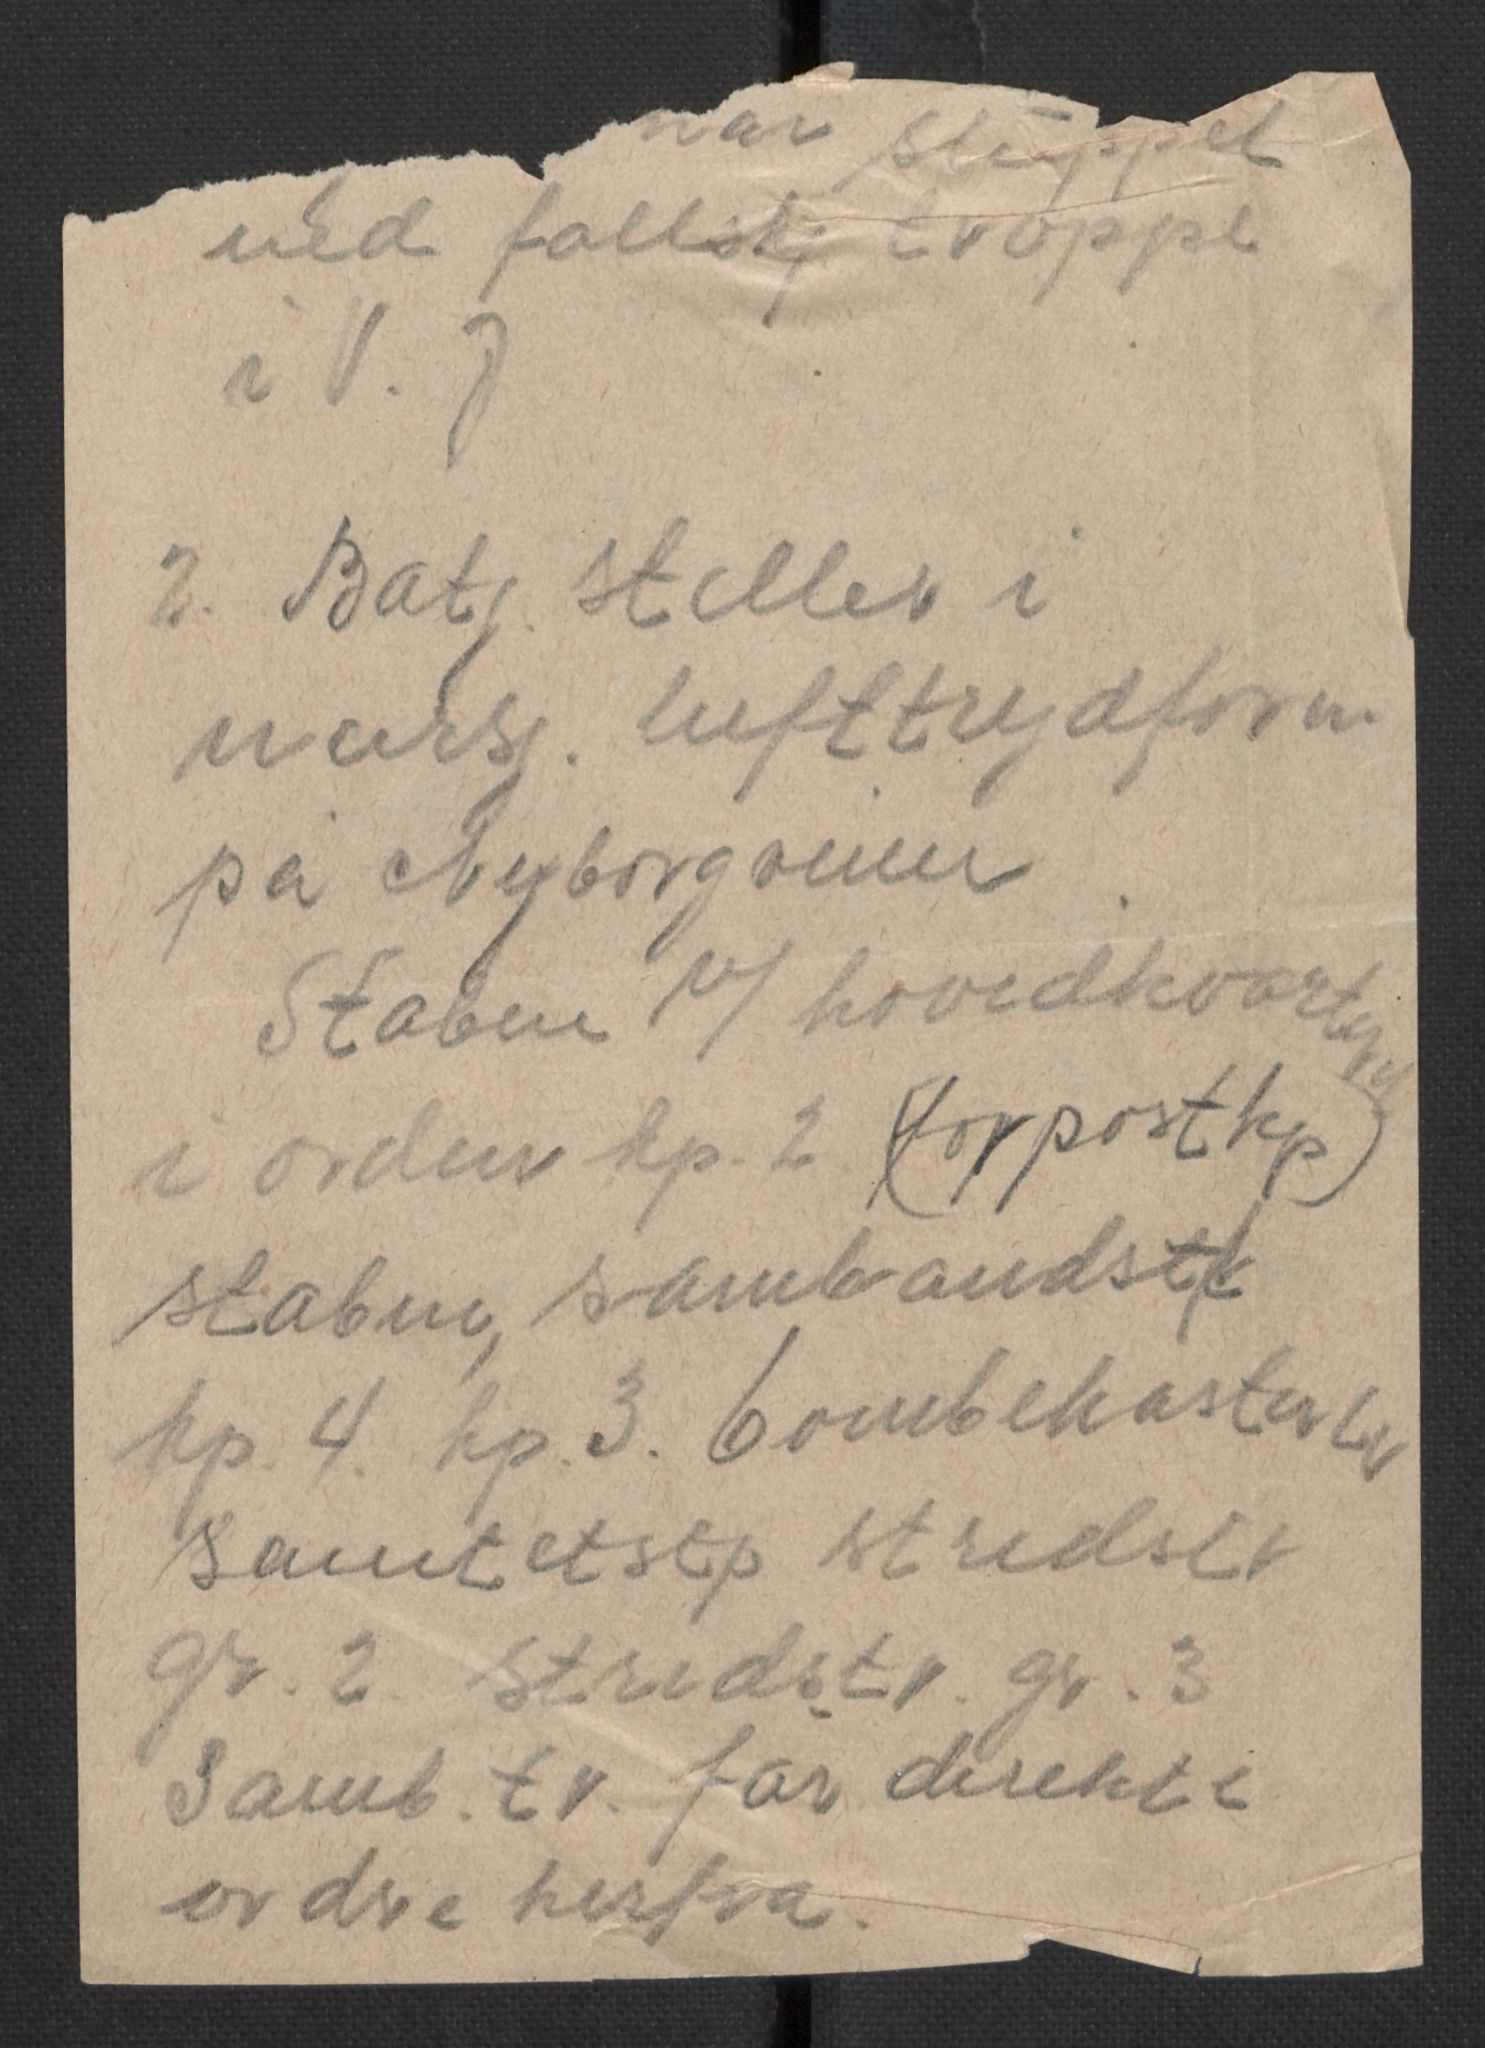 har sluppet
ned fallskj tropper
i V. J
2. Batj. steller i
marsj. lufttrejdform.
på Nyborgveien.
Staben v/ hovedkvarteret
i orden kp. 2 (forpostkp)
staben, sambandstr
kp. 4. kp. 3. bombekaster tr
Sanitetstp stridstr
gr. 2. stridstr. gr. 3
Samb. tr. får direkte
ordre herfra.